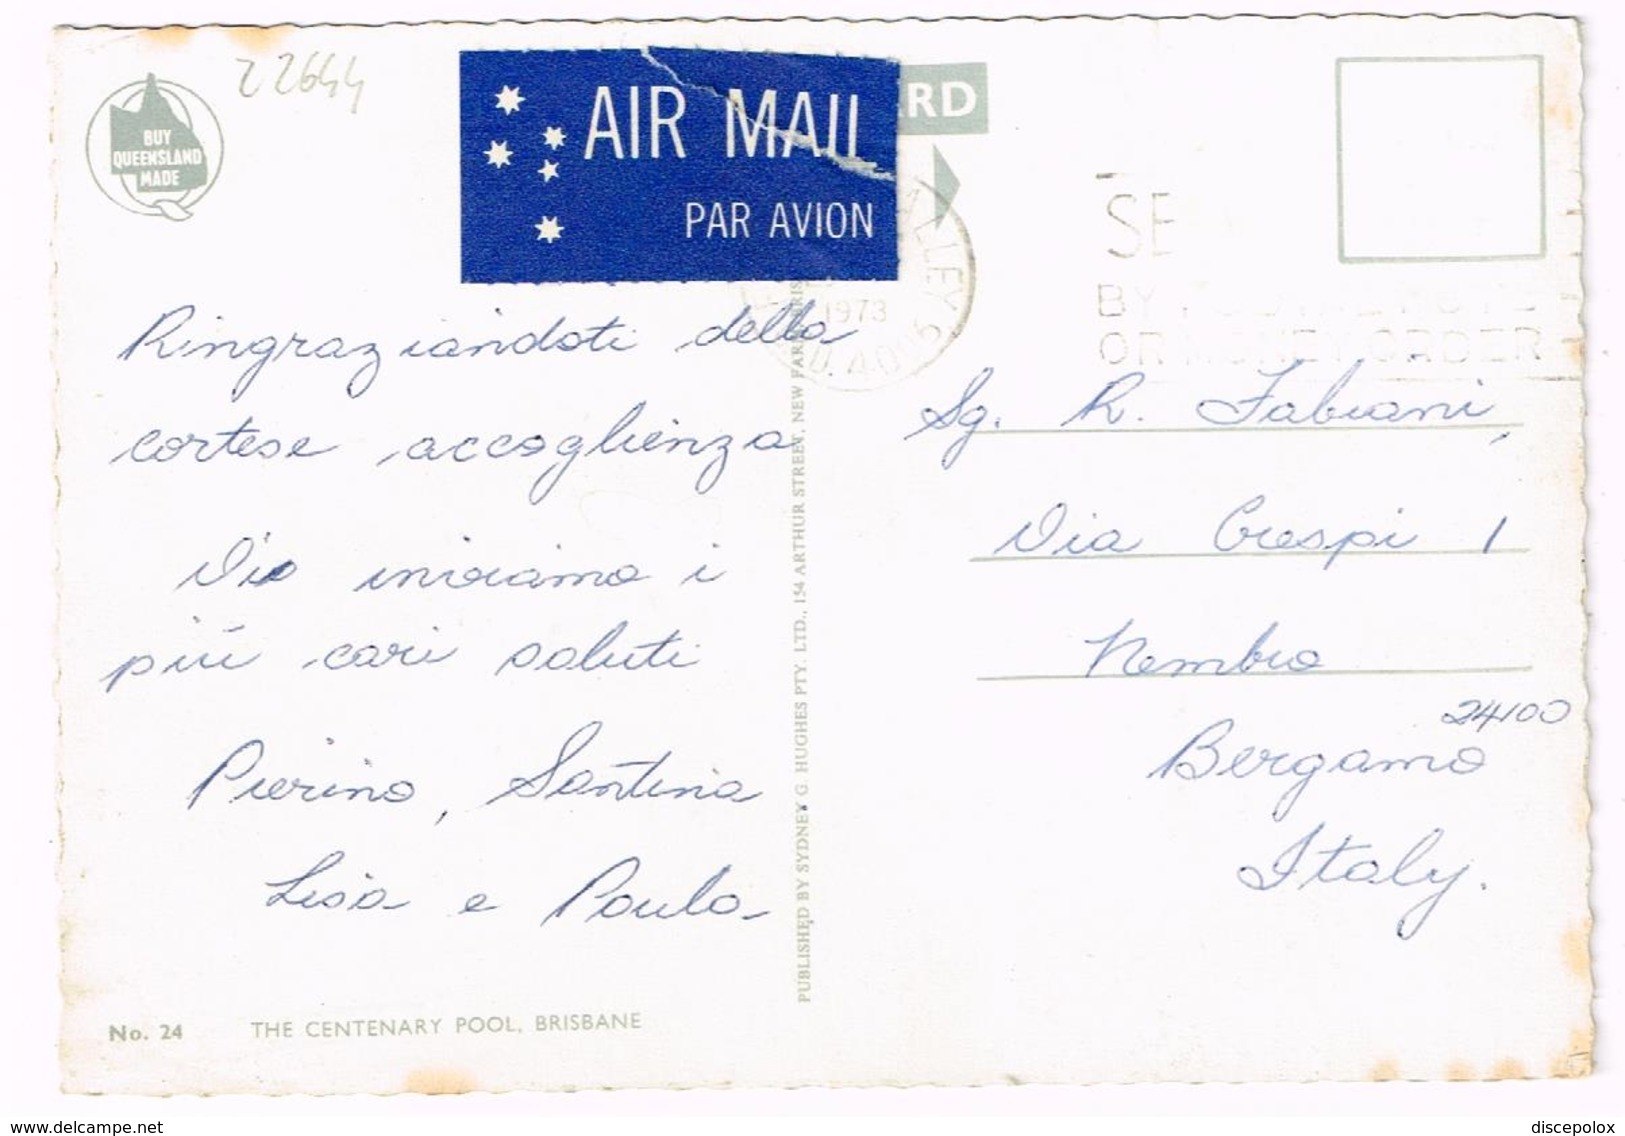 22644
BUY
QUEENSLAND
MADE
AIR MAIL
PAR AVION
ARD
ALLEY
1973
SE
BY
OR MONEY ORDER
Ringraziandoti della
cortese accoglienza
Vio inviamo i
più cari saluti
Pierino, Santina
Lisa e Paula
Sg. R. Fabiani,
Via Crespi 1
Nembro
24100
Bergamo
Italy.
PUBLISHED BY SYDNEY G. HUGHES PTY. LTD., 154 ARTHUR STREET, NEW FARM, BRIS
No. 24 THE CENTENARY POOL, BRISBANE
www.delcampe.net
discepolox